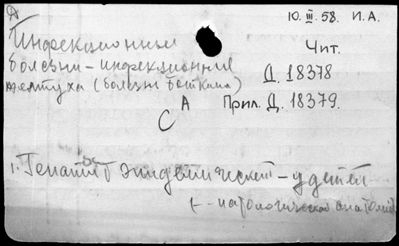 Д
10.III.58. И.А.
Инфекционные
Чит.
болезни - инфекционные
Д. 18378
желтуха (болезнь Боткина)
Прил. Д. 18379.
С А
1. Гепатит эпидемический - у детей
(- патологическая анатомия